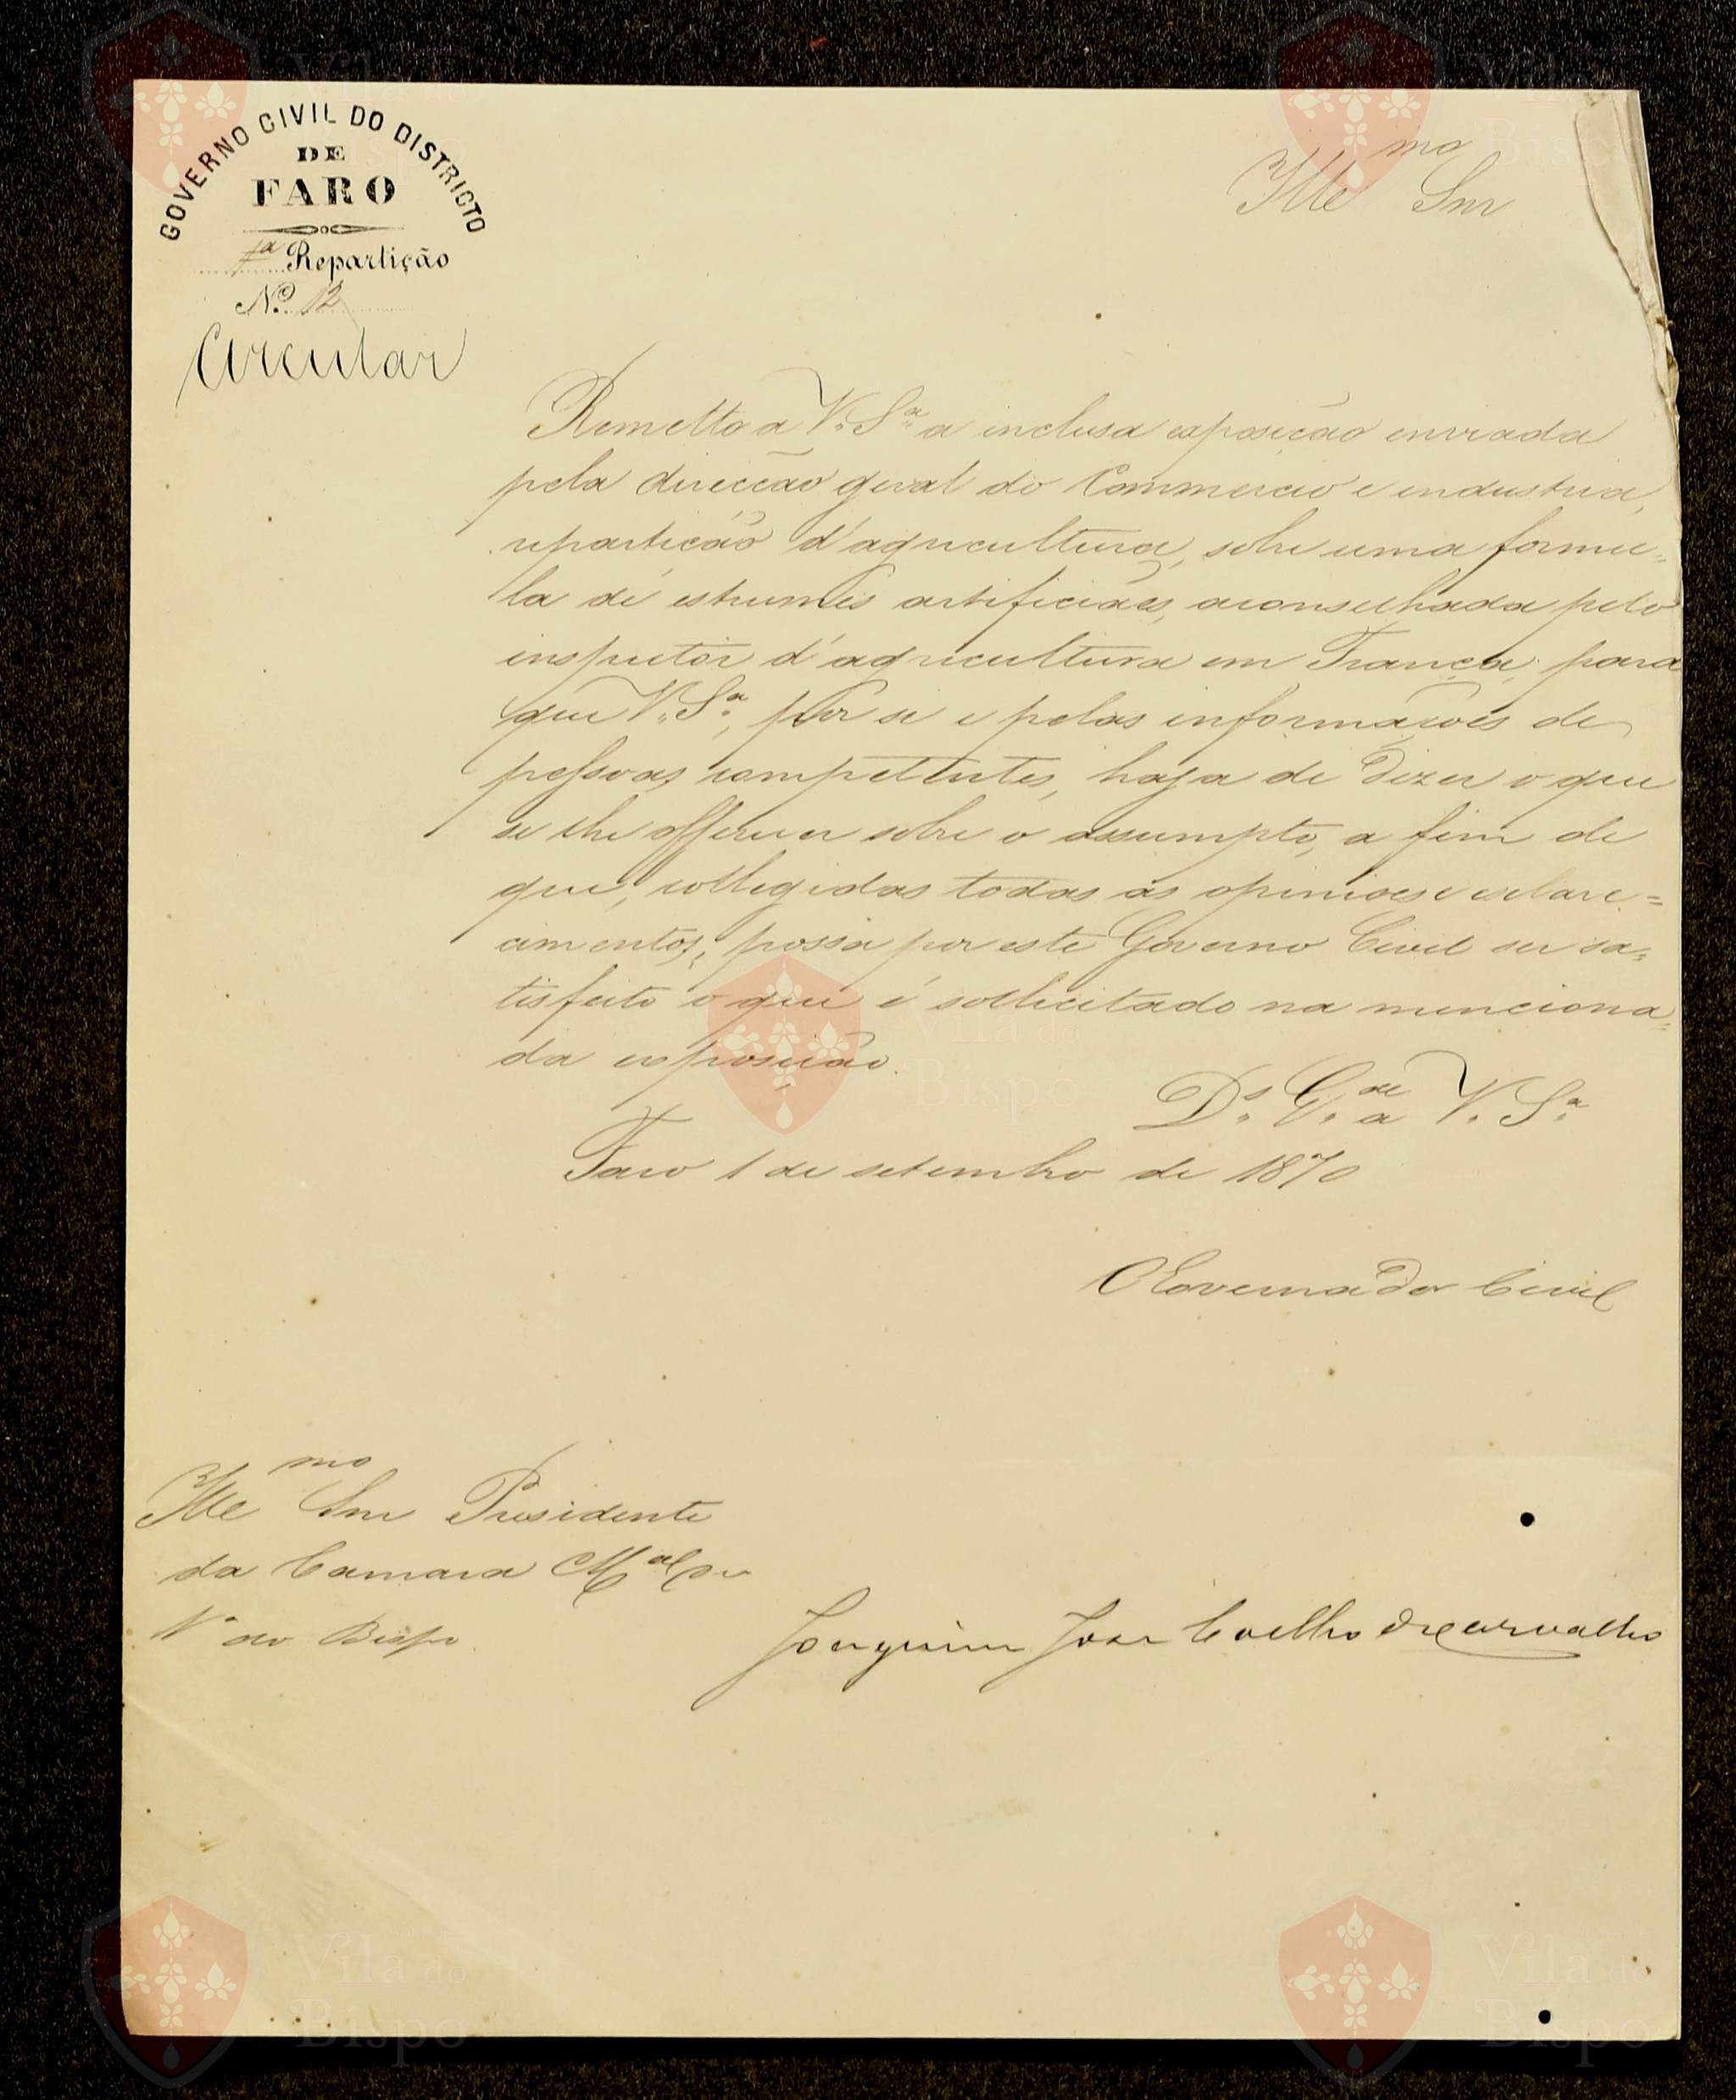 GOVERNO CIVIL DO DISTRICTO
DE
FARO
1ª Repartição
Nº 12
Circular
Ille mo Snr
Remetto a V. Sª a inclusa exposição enviada
pela direcção geral do Commercio e industria,
repartição d'agricultura, sobre uma formu=
la de estrumes artificiaes, aconselhada pelo
inspector d'agricultura em França, para
que V. Sª, por si e pelas informações de
pessoas competentes, haja de dizer o que
se lhe offerecer sobre o assumpto, a fim de
que, colligidas todas as opiniões e esclare=
cimentos, possa por este Governo Civil ser sa=
tisfeito o que é sollicitado na menciona=
da exposição.
Ds. G.de a V. Sª
Faro 1 de setembro de 1870
O Governador Civil
Ille mo Snr Presidente
da Camara M.al de
Vª do Bispo.
Joaquim José Coelho de Carvalho
Vila do
Bispo